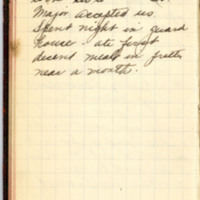 Major accepted us.
Spent night in guard
house - ate first
decent meal in pretty
near a month.